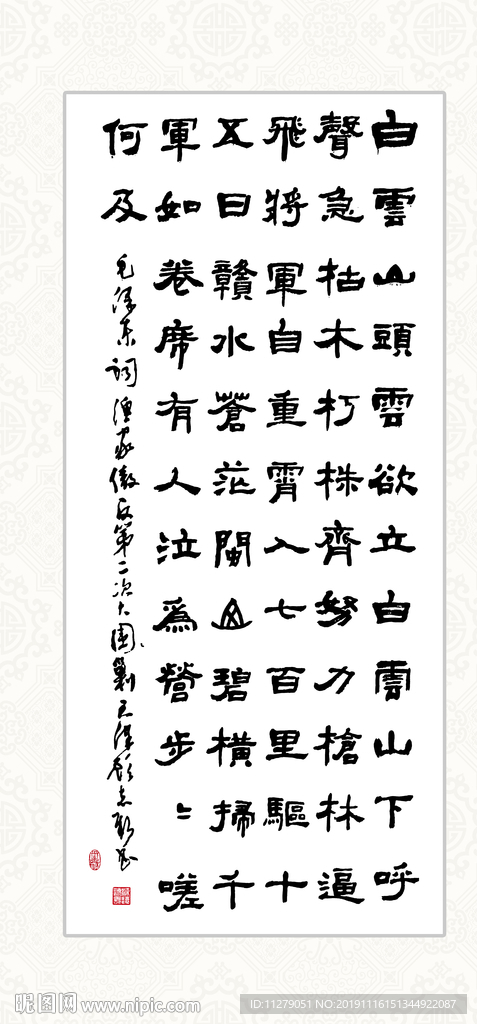 白雲山頭雲欲立白雲山下呼
聲急枯木朽株齊努力槍林逼
飛將軍自重霄入七百里驅十
五日贛水蒼茫閩山碧橫掃千
軍如卷席有人泣爲營步〻嗟
何及
毛澤東詞漁家傲反第二次大圍剿
昵图网 www.nipic.com
ID:11279051 NO:20191116151344922087